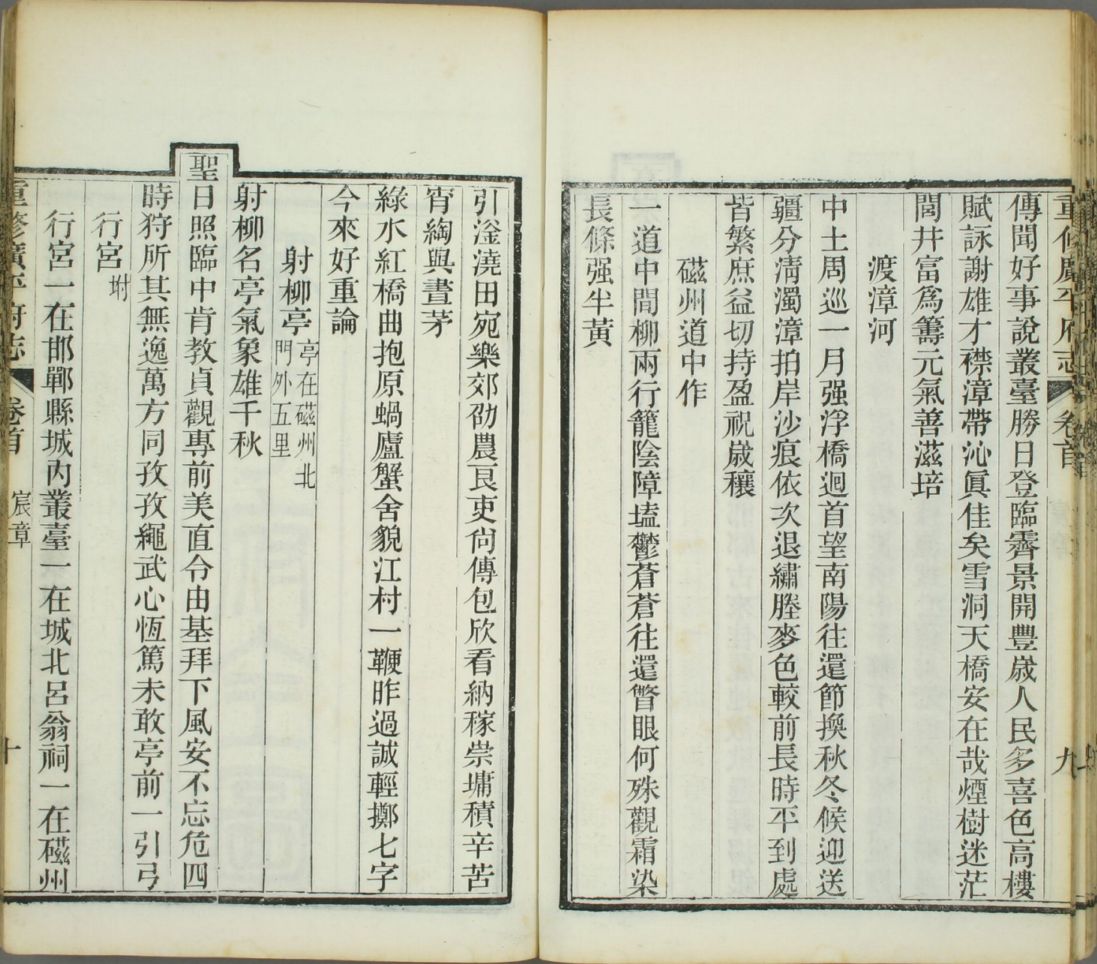 重修廣平府志 卷首 九
傳聞好事說叢臺勝日登臨霽景開豐歲人民多喜色高樓
賦詠謝雄才襟漳帶沁眞佳矣雪洞天橋安在哉煙樹迷茫
閭井富爲籌元氣善滋培
渡漳河
中土周巡一月强浮橋迴首望南陽往還節換秋冬候迎送
疆分淸濁漳拍岸沙痕依次退繡塍麥色較前長時平到處
皆繁庶益切持盈祝歲穰
磁州道中作
一道中間柳兩行籠陰障堨鬱蒼蒼往還瞥眼何殊觀霜染
長條强半黃
引滏澆田宛樂郊劭農良吏尙傳包欣看納稼崇墉積辛苦
宵綯與晝茅
綠水紅橋曲抱原蝸廬蟹舍貌江村一鞭昨過誠輕擲七字
今來好重論
射柳亭 亭在磁州北門外五里
射柳名亭氣象雄千秋
聖日照臨中肯教貞觀專前美直令由基拜下風安不忘危四
時狩所其無逸萬方同孜孜繩武心恆篤未敢亭前一引弓
行宮 坿
行宮一在邯鄲縣城內叢臺一在城北呂翁祠一在磁州
重修廣平府志 卷首 宸章 十